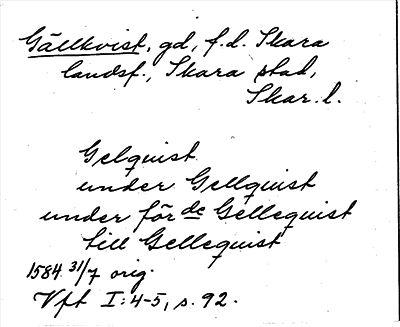 Gällkvist, gd, f.d. Skara
landsf., Skara stad,
Skar. l.
Gelquist
under Gellquist
under för de Gellequist
till Gellequist
1584 31/7 orig.
Vft I:4-5, s. 92.